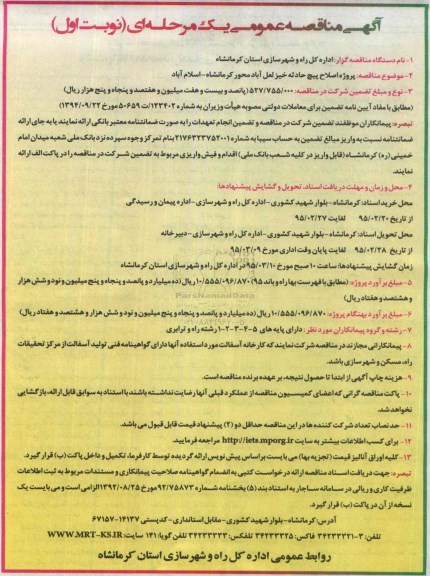 آگهی مناقصه عمومی یک مرحله‌ای (نوبت اول)
۱- نام دستگاه مناقصه گزار: اداره کل راه و شهرسازی استان کرمانشاه
۲- موضوع مناقصه: پروژه اصلاح پیچ حادثه خیز لعل آباد محور کرمانشاه - اسلام آباد
۳- نوع و مبلغ تضمین شرکت در مناقصه: ۵۲۷/۷۵۵/۰۰۰ (پانصد و بیست و هفت میلیون و هفتصد و پنجاه و پنج هزار ریال)
(مطابق با مفاد آیین نامه تضمین برای معاملات دولتی مصوبه هیأت وزیران به شماره ۱۲۳۴۰۲/ت۵۰۶۵۹ مورخ ۱۳۹۴/۰۹/۲۲)
تبصره: پیمانکاران موظفند تضمین شرکت در مناقصه و تضمین انجام تعهدات را به صورت ضمانتنامه معتبر بانکی ارائه نمایند یا به جای ارائه
ضمانتنامه نسبت به واریز مبالغ تضمین به حساب سیبا به شماره ۲۱۷۶۳۲۳۷۵۲۰۰۱ بنام تمرکز وجوه سپرده نزد بانک ملی شعبه میدان امام
خمینی (ره) کرمانشاه (قابل واریز در کلیه شعب بانک ملی) اقدام و فیش واریزی مربوط به تضمین شرکت در مناقصه را در پاکت الف ارائه
نمایند.
۴- محل و زمان و مهلت دریافت اسناد، تحویل و گشایش پیشنهادها:
محل خرید اسناد: کرمانشاه - بلوار شهید کشوری - اداره کل راه و شهرسازی - اداره پیمان و رسیدگی
از تاریخ ۹۵/۰۲/۲۰ لغایت ۹۵/۰۲/۲۷
محل تحویل اسناد: کرمانشاه - بلوار شهید کشوری - اداره کل راه و شهرسازی - دبیرخانه
از تاریخ ۹۵/۰۲/۲۸ لغایت پایان وقت اداری مورخ ۹۵/۰۳/۰۹
زمان گشایش پیشنهادها: ساعت ۱۰ صبح مورخ ۹۵/۰۳/۱۰ در اداره کل راه و شهرسازی استان کرمانشاه
۵- مبلغ برآورد پروژه: (مطابق با فهرست بها راه و باند ۹۵) ۱۰/۵۵۵/۰۹۶/۸۷۰ ریال (ده میلیارد و پانصد و پنجاه و پنج میلیون و نود و شش هزار
و هشتصد و هفتاد ریال)
۶- مبلغ برآورد بهنگام پروژه: ۱۰/۵۵۵/۰۹۶/۸۷۰ ریال (ده میلیارد و پانصد و پنجاه و پنج میلیون و نود و شش هزار و هشتصد و هفتاد ریال)
۷- رشته و گروه پیمانکاران مورد نظر: دارای پایه های ۵-۴-۳-۲-۱ رشته راه و ترابری
۸- پیمانکارانی مجازند در مناقصه شرکت نمایند که کارخانه آسفالت مورد استفاده آنها دارای گواهینامه فنی تولید آسفالت از مرکز تحقیقات
راه، مسکن و شهرسازی باشد.
۹- هزینه چاپ آگهی از ابتدا تا حصول نتیجه، بر عهده برنده مناقصه است.
۱۰- پاکت مناقصه گرانی که اعضای کمیسیون مناقصه از عملکرد قبلی آنها رضایت نداشته باشند با استناد به سوابق قابل ارائه، بازگشایی
نخواهد شد.
۱۱- حد نصاب تعداد شرکت کننده ها در این مناقصه حداقل دو (۲) پیشنهاد قیمت قابل قبول می باشد.
۱۲- برای کسب اطلاعات بیشتر به سایت http://iets.mporg.ir مراجعه فرمایید.
۱۳- کلیه اوراق آنالیز قیمت (تجزیه بها) می بایست براساس پیش نویس ارائه گردیده توسط کارفرما، تکمیل و داخل پاکت (ب) قرار گیرد.
تبصره: جهت دریافت اسناد مناقصه ارائه درخواست کتبی به انضمام گواهینامه صلاحیت پیمانکاری و مستندات مربوط به ثبت اطلاعات
ظرفیت کاری و ریالی در سامانه ساجار به استناد بند (۵) بخشنامه شماره ۹۲/۷۵۸۷۳ مورخ ۱۳۹۲/۰۸/۲۵ الزامی است و می بایست یک
نسخه از آن در پاکت (ب) قرار گیرد.
آدرس: کرمانشاه - بلوار شهید کشوری - مقابل استانداری - کدپستی ۱۴۱۳۷-۶۷۱۵۷
تلفن: ۳-۳۴۲۳۳۳۲۱ فاکس: ۳۴۲۳۳۳۲۵ تلفن: ۳۴۲۳۳۳۳۳ تلفن گویا: ۱۴۱ سایت: WWW.MRT-KS.IR
روابط عمومی اداره کل راه و شهرسازی استان کرمانشاه